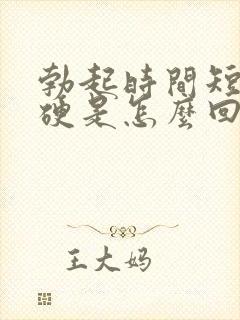 勃起時間短
硬是怎麼回
王大妈